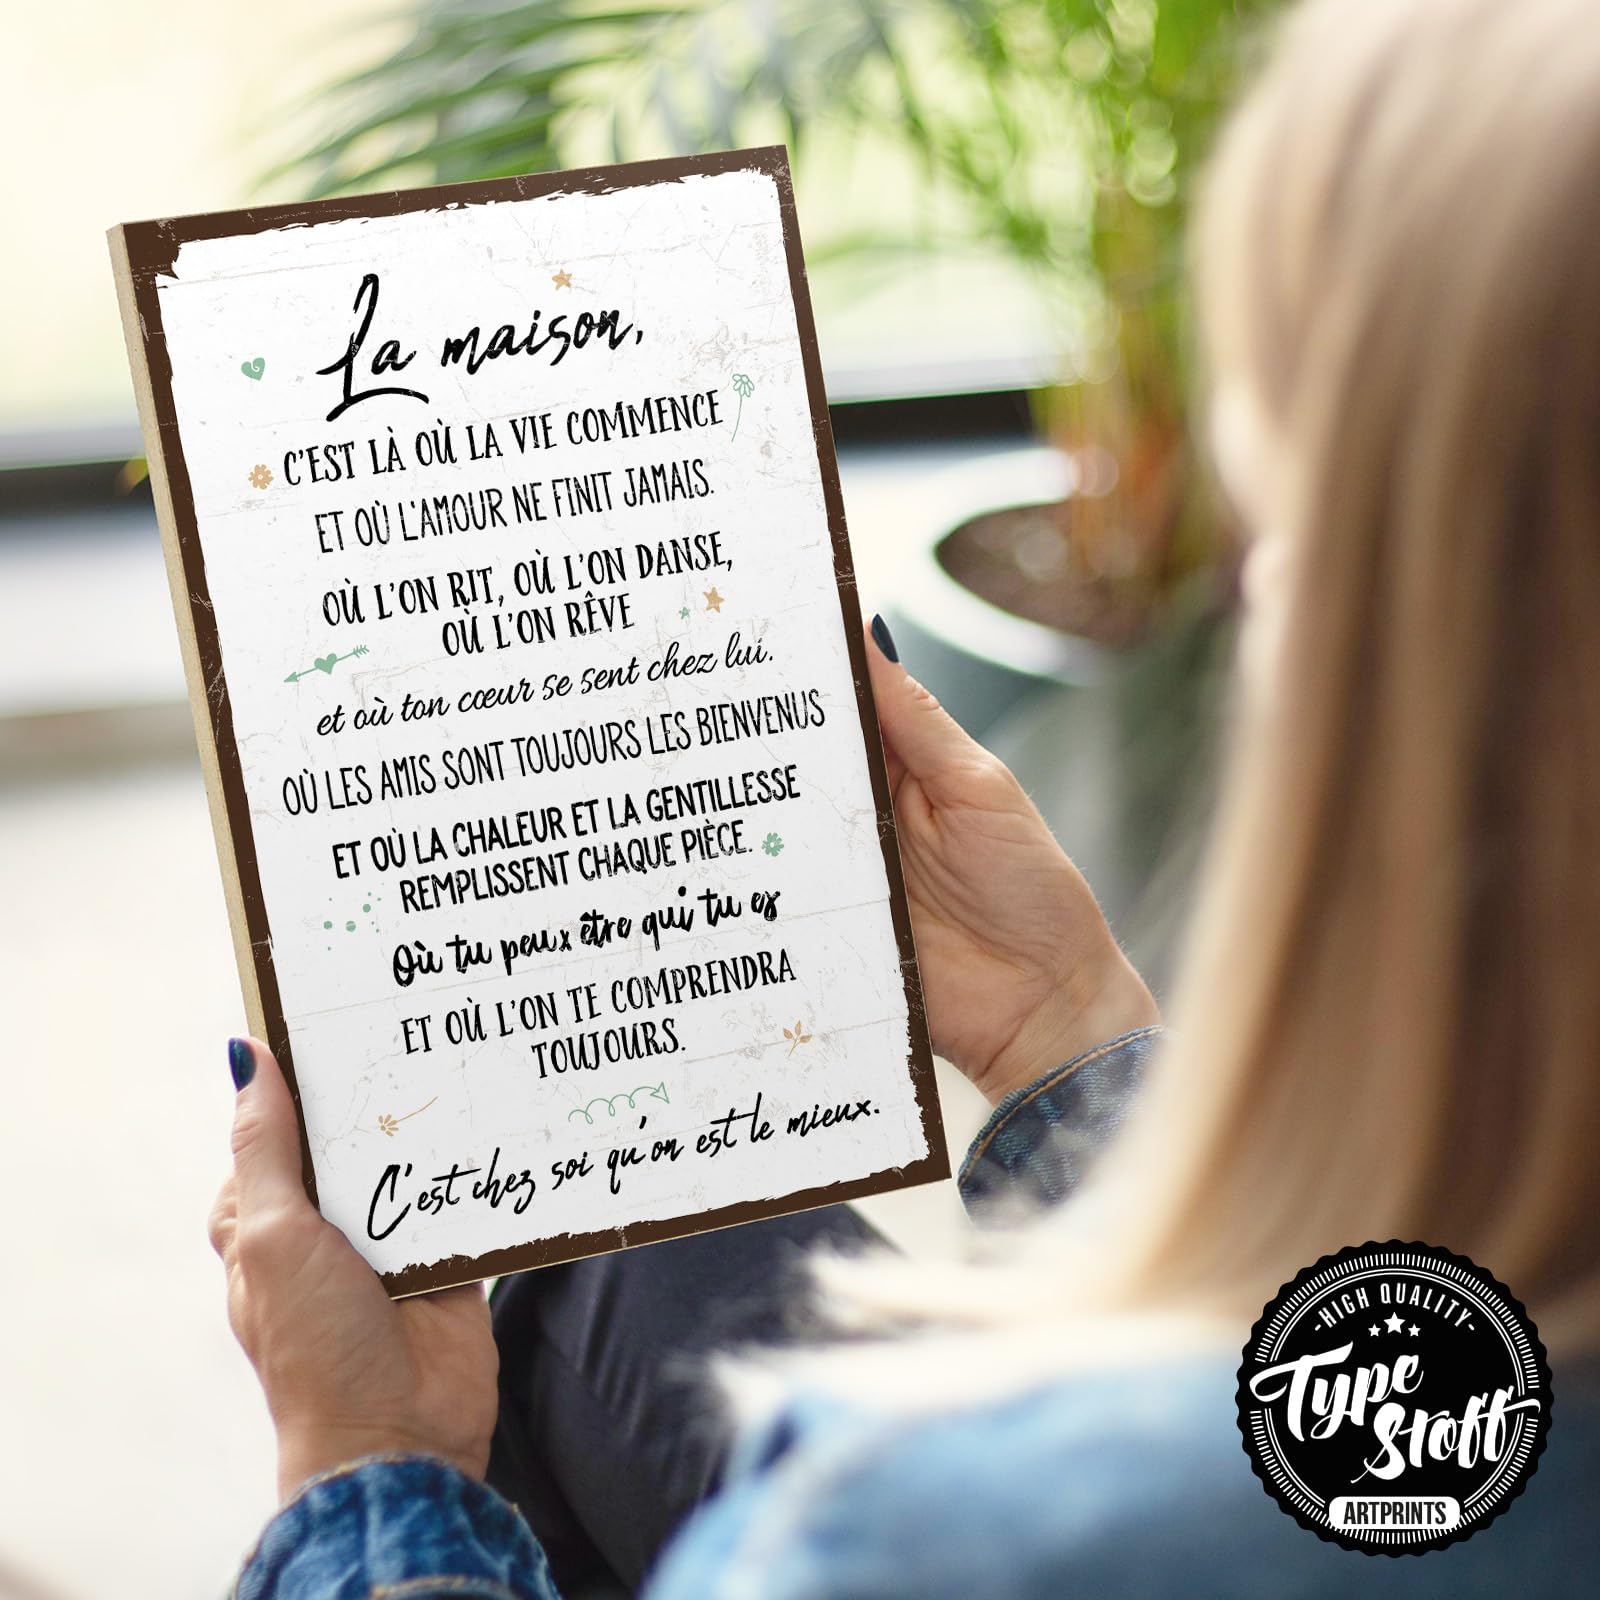 La maison,
C'EST LÀ OÙ LA VIE COMMENCE
ET OÙ L'AMOUR NE FINIT JAMAIS.
OÙ L'ON RIT, OÙ L'ON DANSE,
OÙ L'ON RÊVE
et où ton cœur se sent chez lui.
OÙ LES AMIS SONT TOUJOURS LES BIENVENUS
ET OÙ LA CHALEUR ET LA GENTILLESSE
REMPLISSENT CHAQUE PIÈCE.
Où tu peux être qui tu es
ET OÙ L'ON TE COMPRENDRA
TOUJOURS.
C'est chez soi qu'on est le mieux.
-HIGH QUALITY-
Type
Stoff
ARTPRINTS